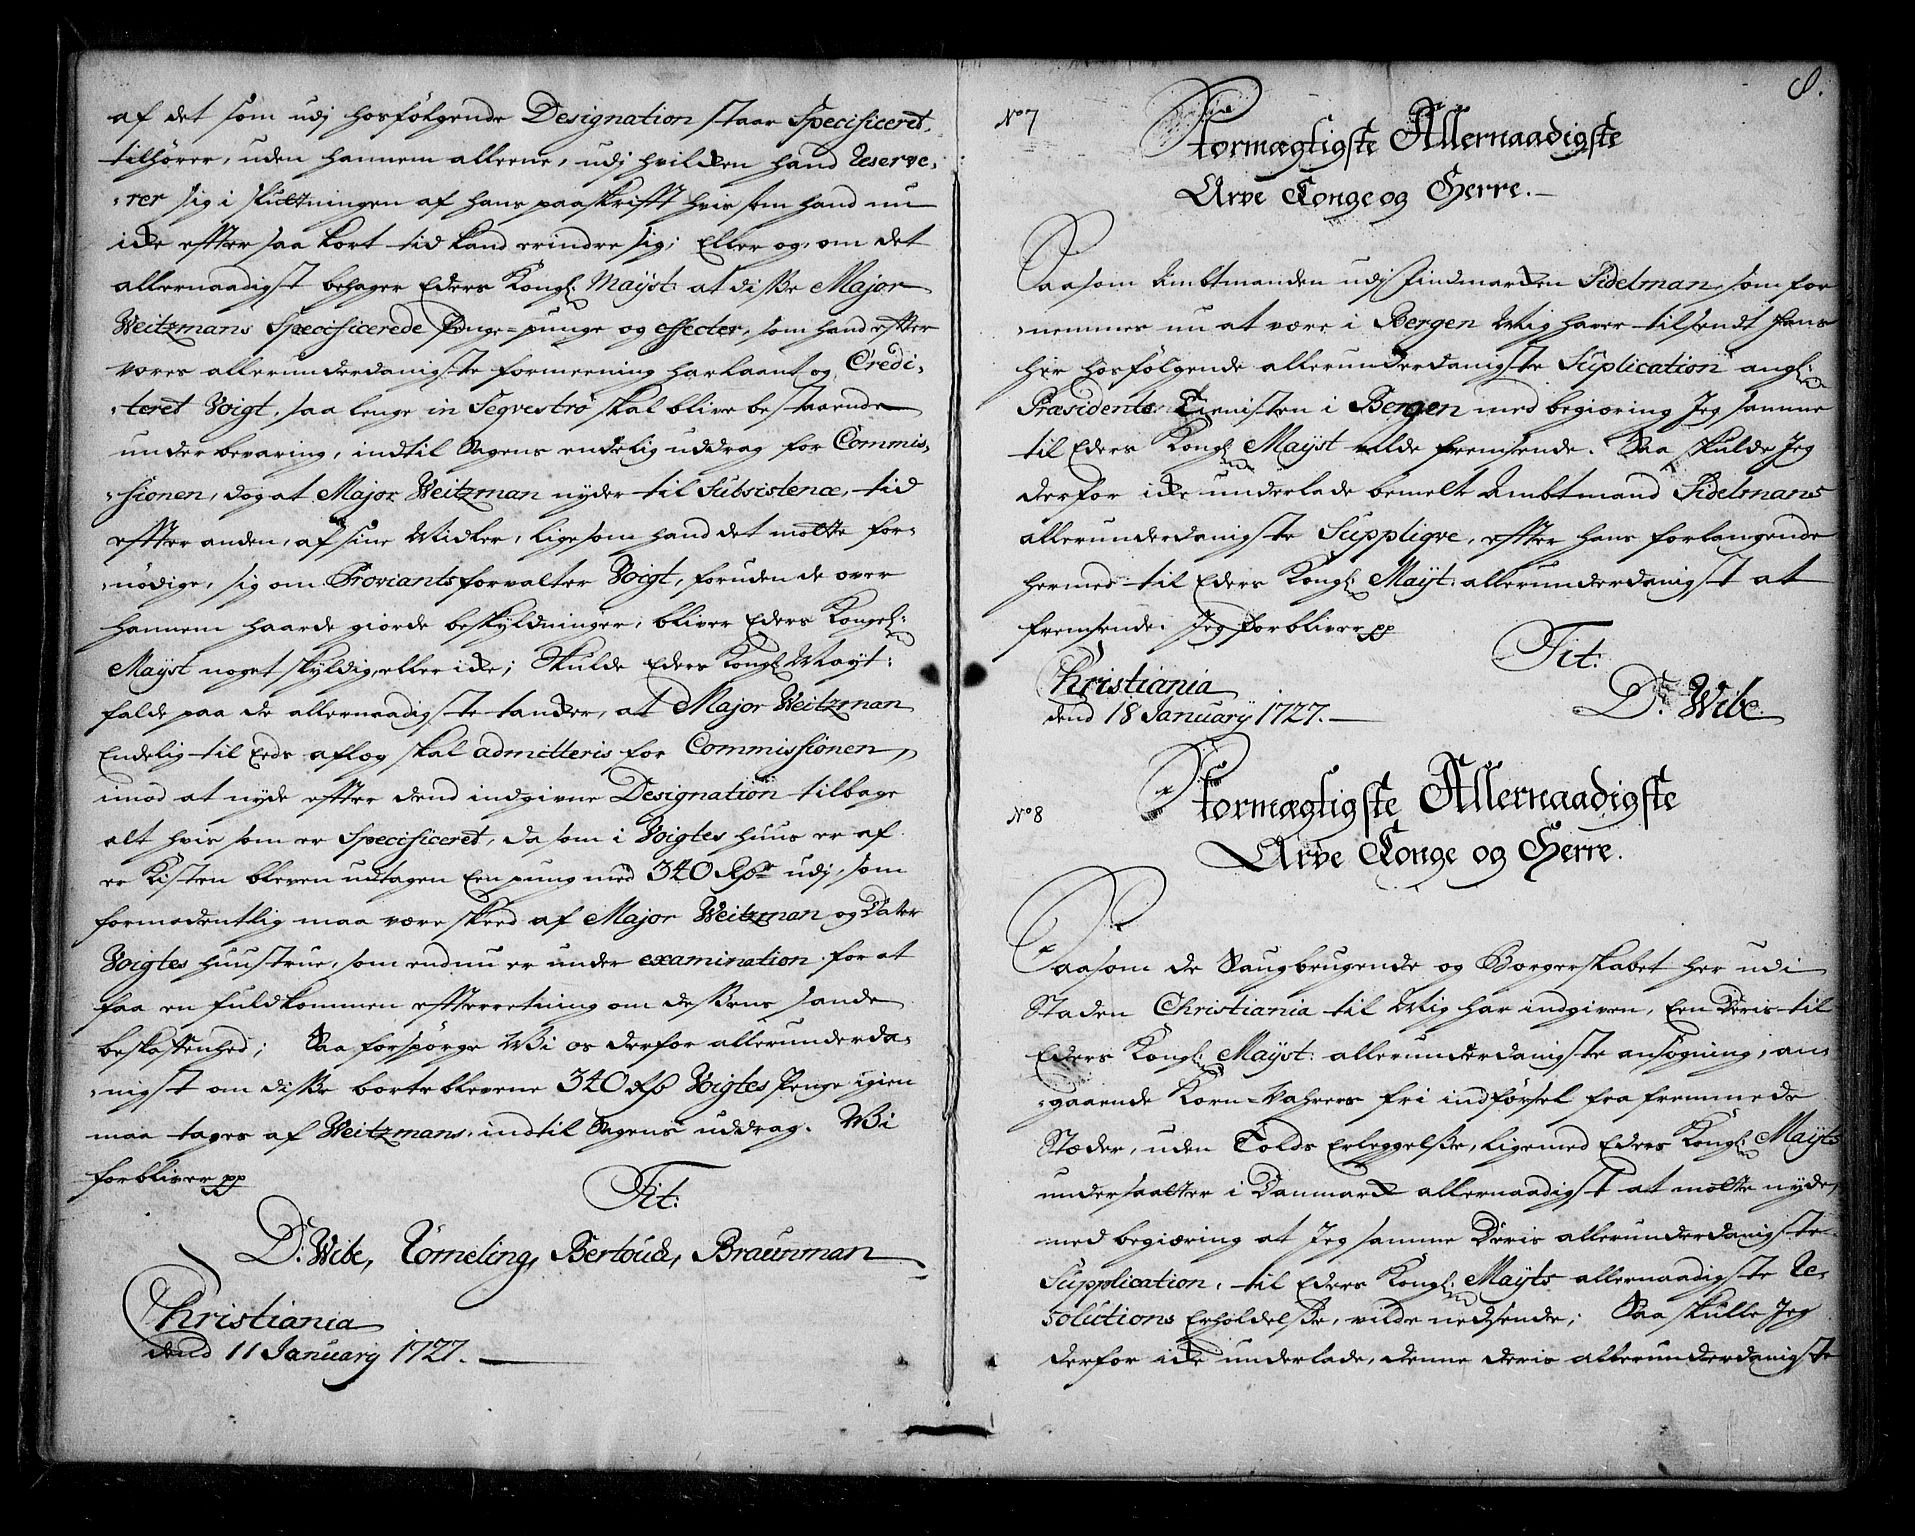 af det som udj hosfölgende Designation staar Specificeret,
tilhörer, uden hannem alleene, udj hvilken hand Reserve-
-rer sig i skutningen af hans paaskrifft hvis som hand nu
icke effter saa kort tid kand erindre sig; Eller og, om det
allernaadigst behager Eders Kongl: Mayst: at disse Major
Weitzmans Specificerede Penge-punge og effecter, som hand effter
vores allerunderdanigste formeening har laant og Credi-
-teret Voigt, saa lenge in Seqvestro skal blive bestaaende
under bevaring, indtil Sagens endelig uddrag for Commis-
-sionen, dog at Major Weitzman nyder til Subsistence, tid
effter anden, af sine Midler, lige som hand det motte for-
-nödige, sig om Proviantsforvalter Voigt, foruden de over
hannem haarde giorde beskyldninger, bliver Eders Kongel:
Mayst noget skyldig, eller icke; Skulde Eders Kongl Mayt:
falde paa de allernaadigste tancker, at Major Weitzman
Endelig til Eeds aflæg skal admitteris for Commissionen,
imod at nyde effter dend indgivne Designation tilbage
alt hvis som er Specificeret, da som i Voigtes huus er af
er Kisten bleven udtagen Een pung med 340 Rdr udj, som
formodentlig maa være skeed af Major Weitzman og
Voigtes huustrue, som endnu er under examination for at
faa en fuldkommen effterretning om dessens sande
beskaffenhed; Saa forspörge Wi os derfor allerunderda-
-nigst om disse borteblevene 340 Rd Voigtes Penge igien
maa tages af Weitzmans, indtil Sagens uddrag. Wi
forbliver pp
Tit:
D: Wibe, Tömeling, Bertouch, Braunman
Christiania
dend 11 January 1727.
8.
No 7
Stormægtigste Allernaadigste
Arve Konge og Herre.
Saasom Ambtmanden udj Findmarcken Sidelman, som for
-nemmes nu at være i Bergen Mig haver tilsendt hans
her hosfölgende allerunderdanigste Suplication angl:
Præsidents Tienisten i Bergen med begiæring Jeg samme
til Eders Kongl Mayst vilde fremsende. Saa skulde Jeg
derfor icke underlade bemelte Ambtmand Sidelmans
allerunderdanigste Suppliqve, effter hans forlangende
hermed til Eders Kongl: Mayt: allerunderdanigst at
fremsende. Jeg forbliver pp
Tit:
Christiania
dend 18 January 1727.
D: Wibe.
No 8
Stormægtigste Allernaadigste
Arve Konge og Herre.
Saasom de Saugbrugende og Borgerskabet her udi
Staden Christiania til Mig har indgiven, Een Deris til
Eders Kongl: Mayst: allerunderdanigste ansögning, an-
-gaaende Korn-Vahrers fri indförsel fra fremmede
Stæder, uden Tolds Erleggelse, ligemed Eders Kongl: Mayts
undersaatter i Danmark allernaadigst at motte nyde,
med begiæring at Jeg samme Deris allerunderdanigste
Supplication, til Eders Kongl: Mayts allernaadigste Re-
solutions Erholdelse, vilde nedsende; Saa skulle Jeg
derfor icke underlade, denne deris allerunderdanigste